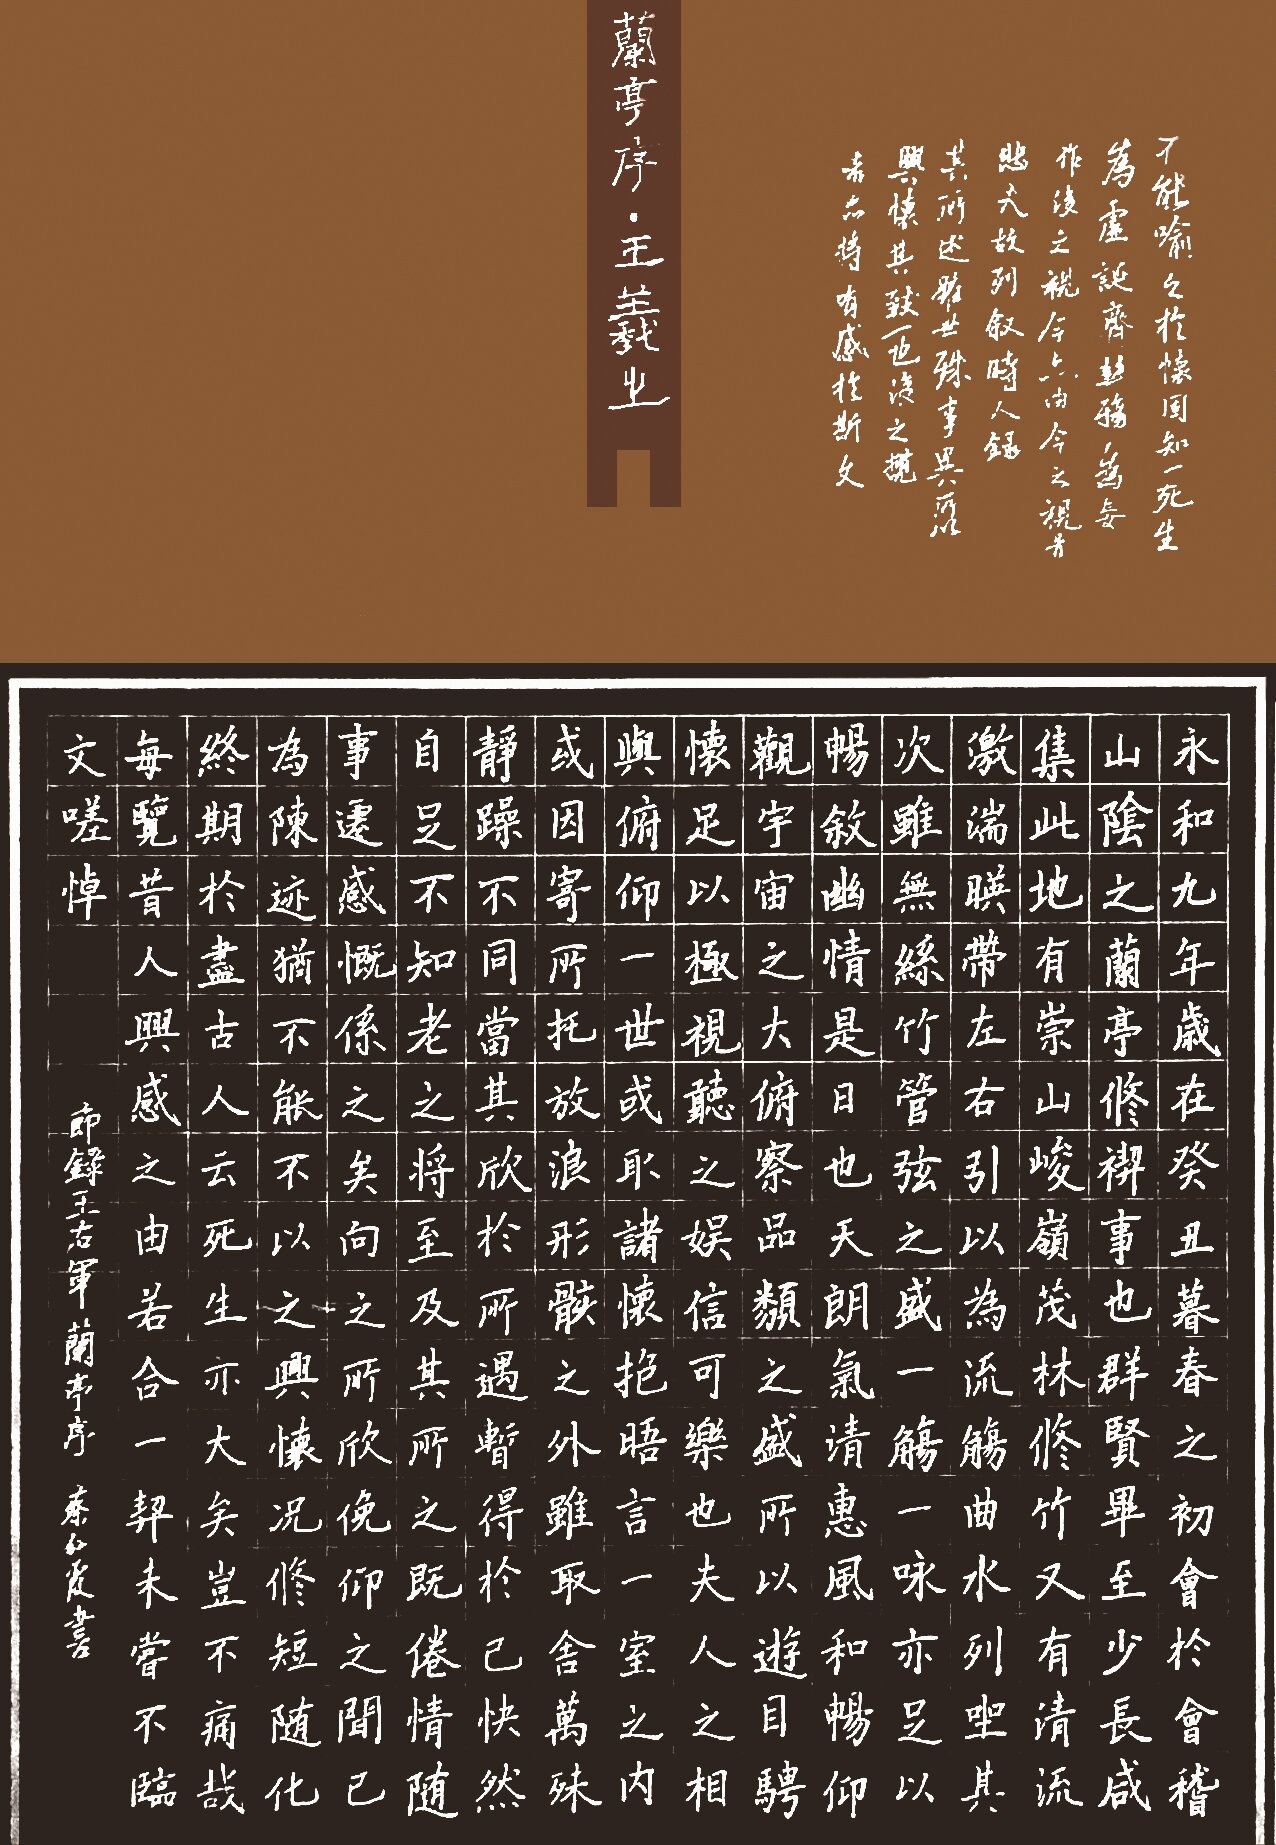 蘭亭序·王羲之
不能喻之於懷固知一死生
為虛誕齊彭殤為妄
作後之視今亦由今之視昔
悲夫故列叙時人錄
其所述雖世殊事異所以
興懷其致一也後之攬
者亦將有感於斯文
永和九年歲在癸丑暮春之初會於會稽
山陰之蘭亭修禊事也群賢畢至少長咸
集此地有崇山峻嶺茂林修竹又有清流
激湍暎帶左右引以為流觴曲水列坐其
次雖無絲竹管弦之盛一觴一咏亦足以
暢敘幽情是日也天朗氣清惠風和暢仰
觀宇宙之大俯察品類之盛所以遊目騁
懷足以極視聽之娛信可樂也夫人之相
與俯仰一世或取諸懷抱晤言一室之内
或因寄所托放浪形骸之外雖取舍萬殊
靜躁不同當其欣於所遇暫得於己快然
自足不知老之將至及其所之既倦情随
事遷感慨係之矣向之所欣俛仰之間已
為陳迹猶不能不以之興懷况修短随化
終期於盡古人云死生亦大矣豈不痛哉
每覽昔人興感之由若合一契未嘗不臨
文嗟悼
節錄王右軍蘭亭序 蔡 書